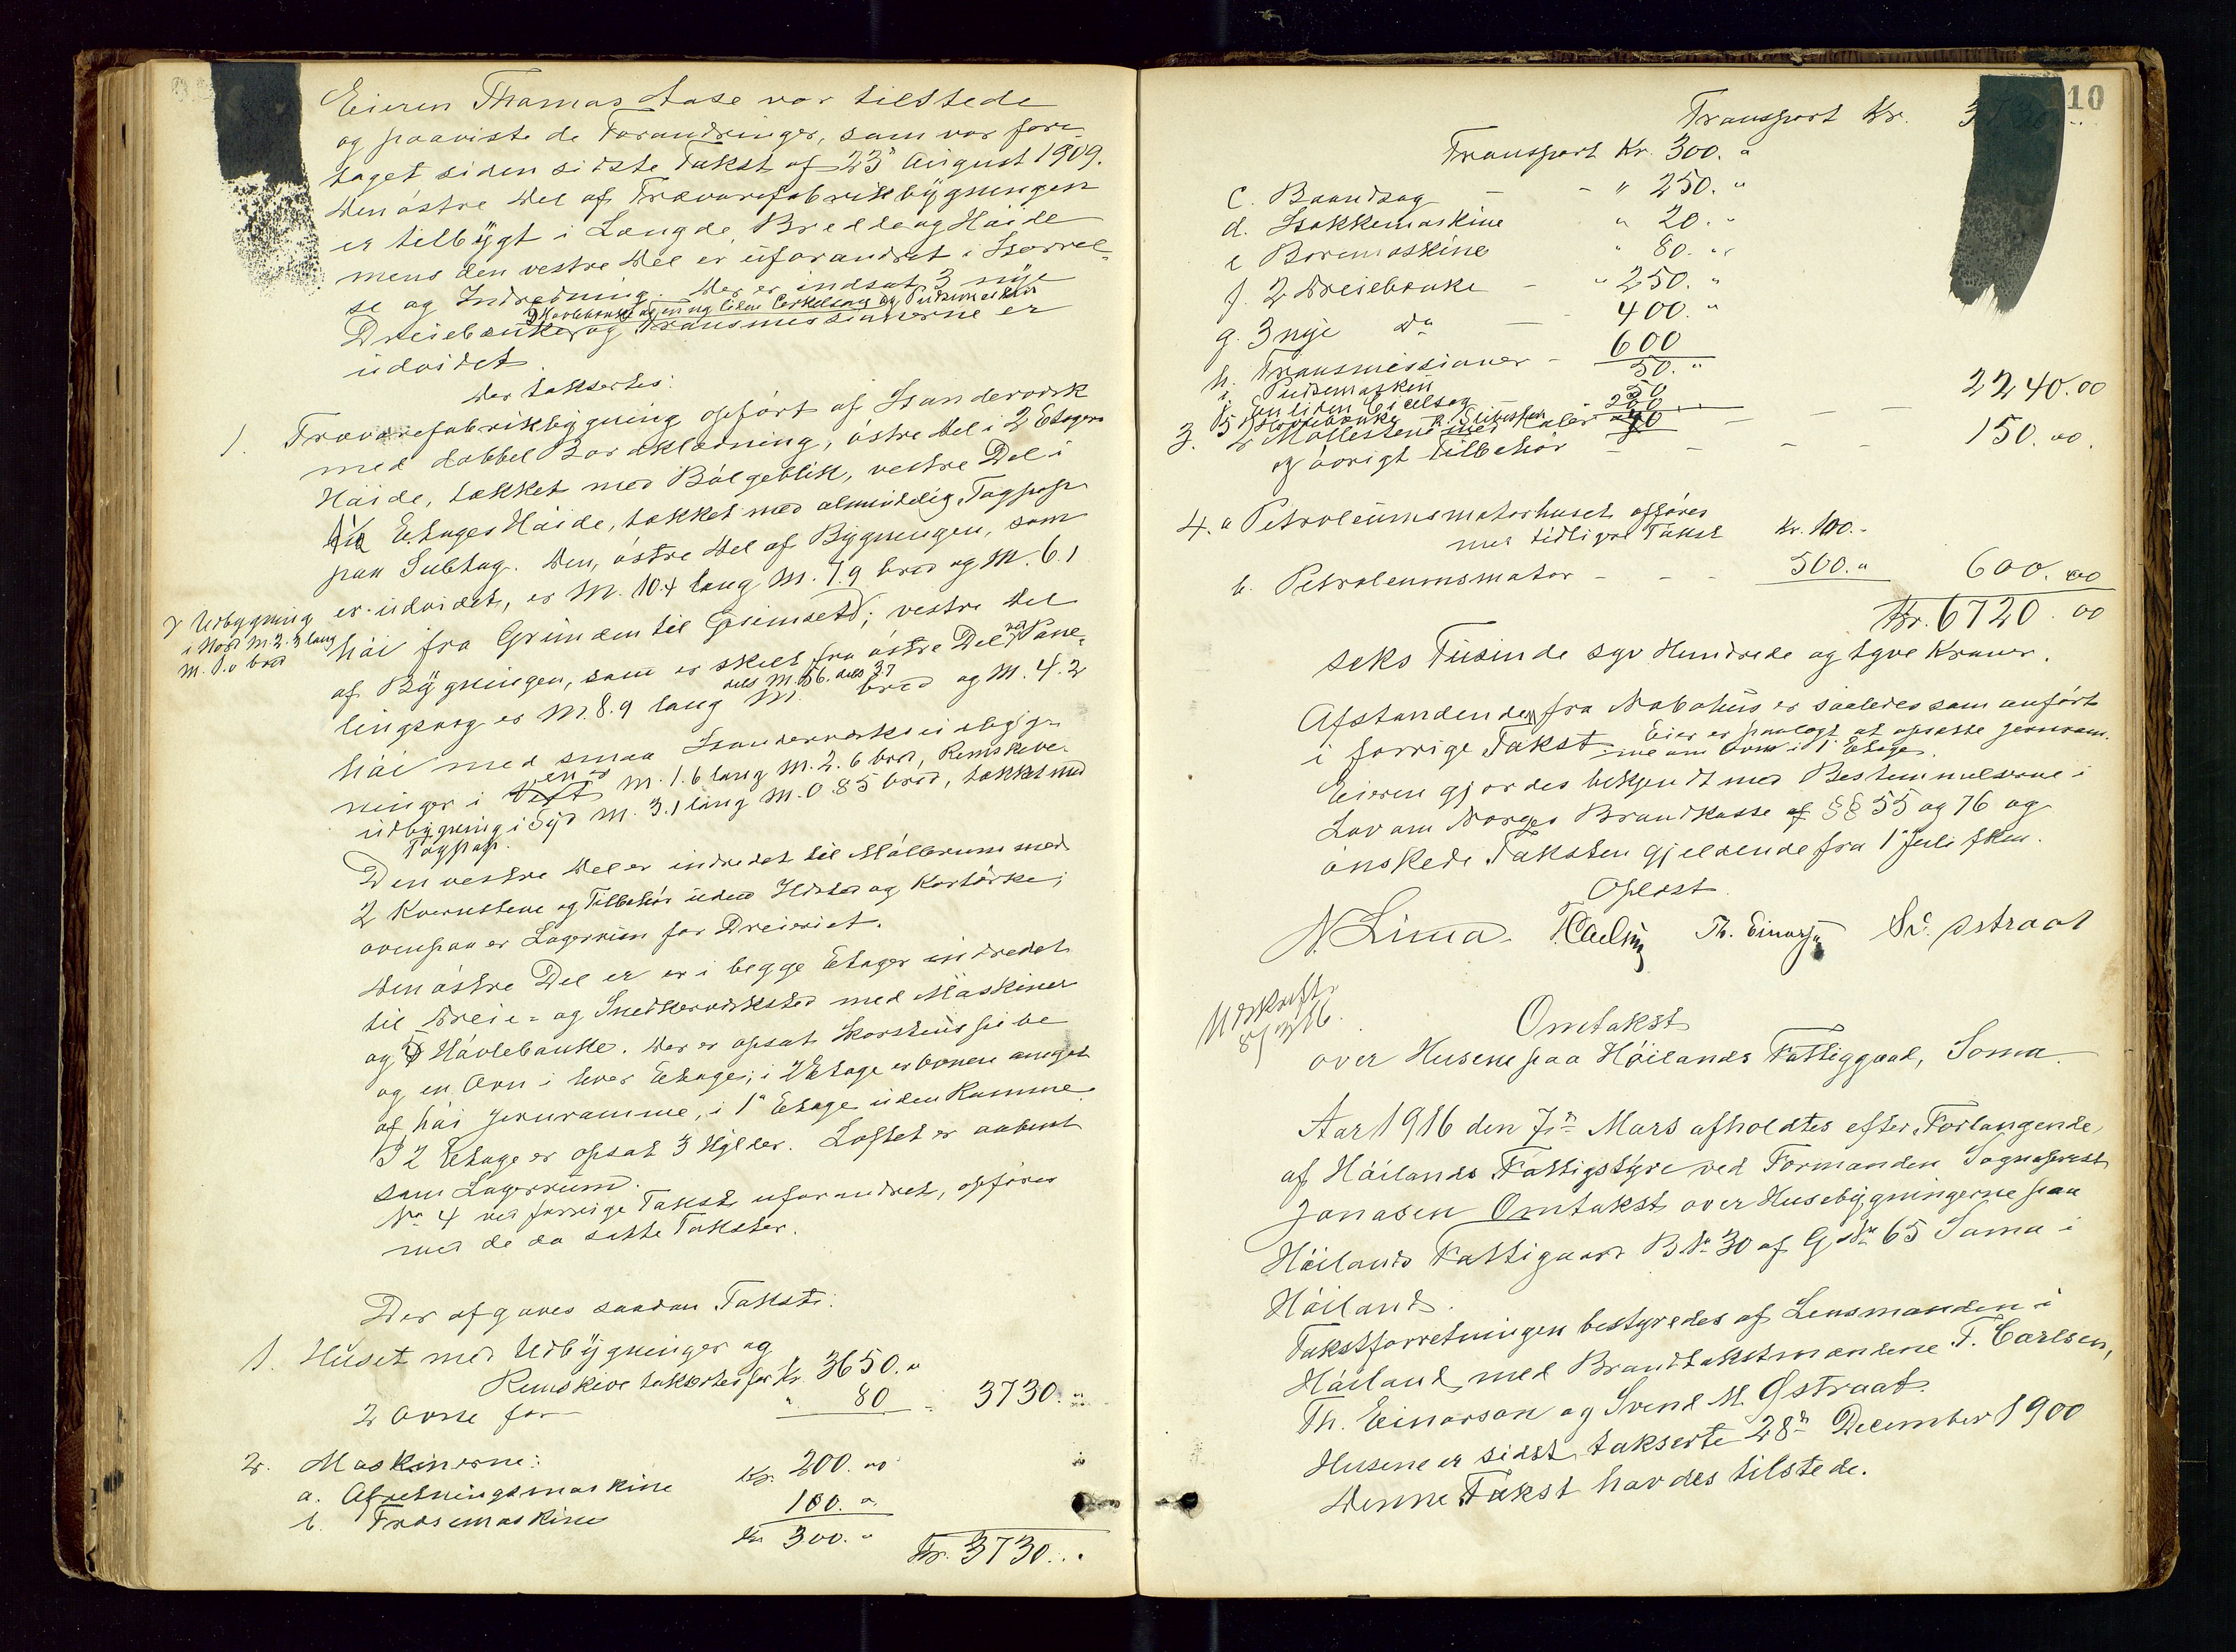 Eieren Thomas Aase var tilstede
og paaviste de Forandringer, som var fore-
taget siden sidste Takst af 23' August 1909.
Den östre Del af Trævarefabrikbygningen
er tilbygt i Længde, Bredde og Höide
mens den vestre Del er uforandret i Størrel-
se og Indredning. Der er indsat 3 nye
Hövlebænke og en ny liden Cirkelsag og Pudsemaskin
Dreiebænke og Transmissionerne er
udvidet.
Der taksertes:
1. Trævarefabrikbygning opfört af Standerværk
med dobbel Bordklædning, östre Del i 2 Etagers
Höide, tækket med Bölgeblik, vestre Del i
1 1/2 Etages Höide, tækket med almindelig Tagpap
paa Subtag. Den östre Del af Bygningen, som
er udvidet, er M. 10.4 lang M. 7.9 bred og M. 6.1
Udbygning
i Nord M. 2.3 lang
M. 1.0 bred
höi fra Grunden til Grimsetd; vestre Del
af Bygningen, som er skilt fra östre Del ved Pane-
lingsvæg er M. 8.9 lang M. dels M. 5.6. dels 3.7 bred og M. 4.2
höi med smaa Standerværksudbyg-
ninger i Vest en M. 1.6 lang M. 2.6 bred, Remskive-
udbygning i Syd M. 3.1 lang M. 0.85 bred, tækket med
Tagpap.
Den vestre Del er indredet til Möllerum med
2 Kvernstene og Tilbehör uden Ildsted og Korntörke;
ovenpaa er Lagerrum for Dreieriet.
Den östre Del er er i begge Etager indredet
til Dreie- og Snedkerverksted med Maskiner
og 5 Hövlebænke. Der er opsat Skorstenspibe
og en Ovn i hver Etage; i 2 Etage er Ovnen omgiet
af höi Jernramme, i 1ste Etage uden Ramme.
I 2 Etage er opsat 3 Hylder. Loftet er aabent
som Lagerrum.
No 4 ved forrige Takst uforandret, opföres
med de da satte Takster.
Der afgaves saadan Takst:
1. Huset med Udbygninger og
Remskive taksertes for Kr. 3650.„
2 Ovne for „ 80 - 3730.„
2. Maskinerne:
a. Afretningsmaskine Kr. 200.00
b. Fræsemaskine 100.„
Kr. 300.„ Kr. 3730..
10
Transport Kr.
Transport Kr. 300.„
c. Baandsag - - „ 250.„
d. Stokkemaskine „ 20.„
e Boremaskine „ 80.„
f. 2 Dreiebænke - „ 250.„
g. 3 nye do - 400.„
h. Transmissioner - 600
i. Pudsemaskin 50.„
j. En liden Cirkelsag 50
5 Hövlebænke 200 2240.00
k. Slibesten 40
3. 2 Möllestene med Kaler
og övrigt Tilbehör - - - - 150.00.
4. a Petroleumsmotorhuset opföres
med tidligere Takst Kr. 100.-
b. Petroleumsmotor - - - 500.„ 600.00
Kr. 6720.00
seks Tusinde syv Hundrede og tyve Kroner.
Afstanden fra Nabohus er saaledes som anfört
i forrige Takst. Eier er paalagt at opsætte Jernram-
me om Ovn i 1 Etage.
Eieren gjordes bekjendt med Bestemmelserne i
Lov om Norges Brandkasse af §§ 55 og 76 og
önskede Taksten gjeldende fra 1ste Juli fkm.
Oplæst
N. Lima. T. Carlsen Th. Einarsen Sv. Østraat
Udskrift
8/3 16.
Omtakst
over Husene paa Höilands Fattiggaard, Soma.
Aar 1916 den 7de Mars afholdtes efter Forlangende
af Höilands Fattigstyre ved Formanden Sogneprest
Jonasen Omtakst over Husebygningerne paa
Höilands Fattigaard B.No 30 af G.No 65 Soma i
Höiland.
Takstforretningen bestyredes af Lensmanden i
Höiland med Brandtakstmændene T. Carlsen,
Th. Einarson og Svend M. Østraat.
Husene er sidst takserte 28de December 1900
Denne Takst havdes tilstede.